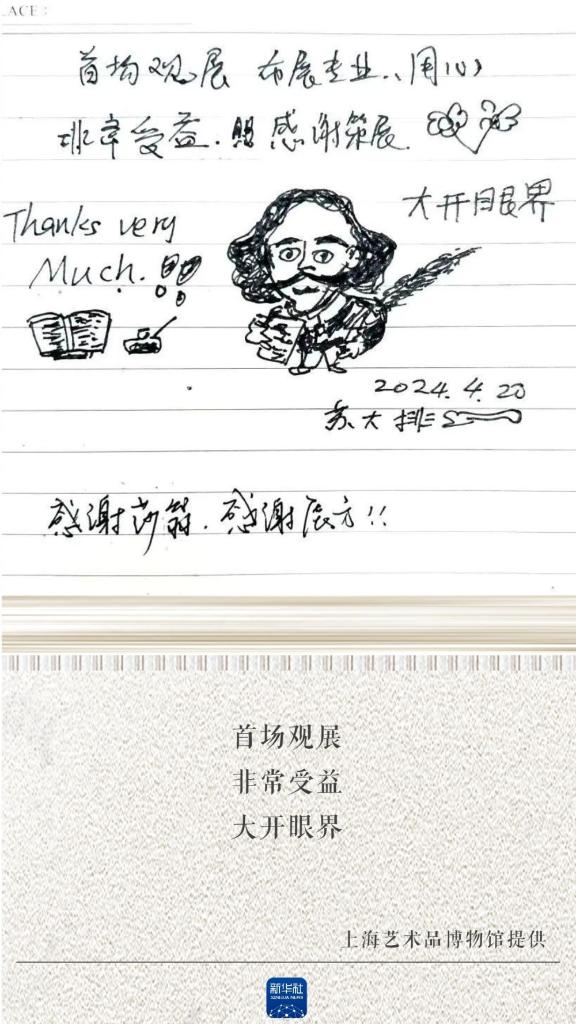 LACE :
首场观展 布展专业、用心
非常受益. 感谢策展
大开眼界
Thanks very
Much.!!
2024.4.20
苏大排
感谢莎翁.感谢展方!!
首场观展
非常受益
大开眼界
上海艺术品博物馆提供
新华社
XINHUA NEWS